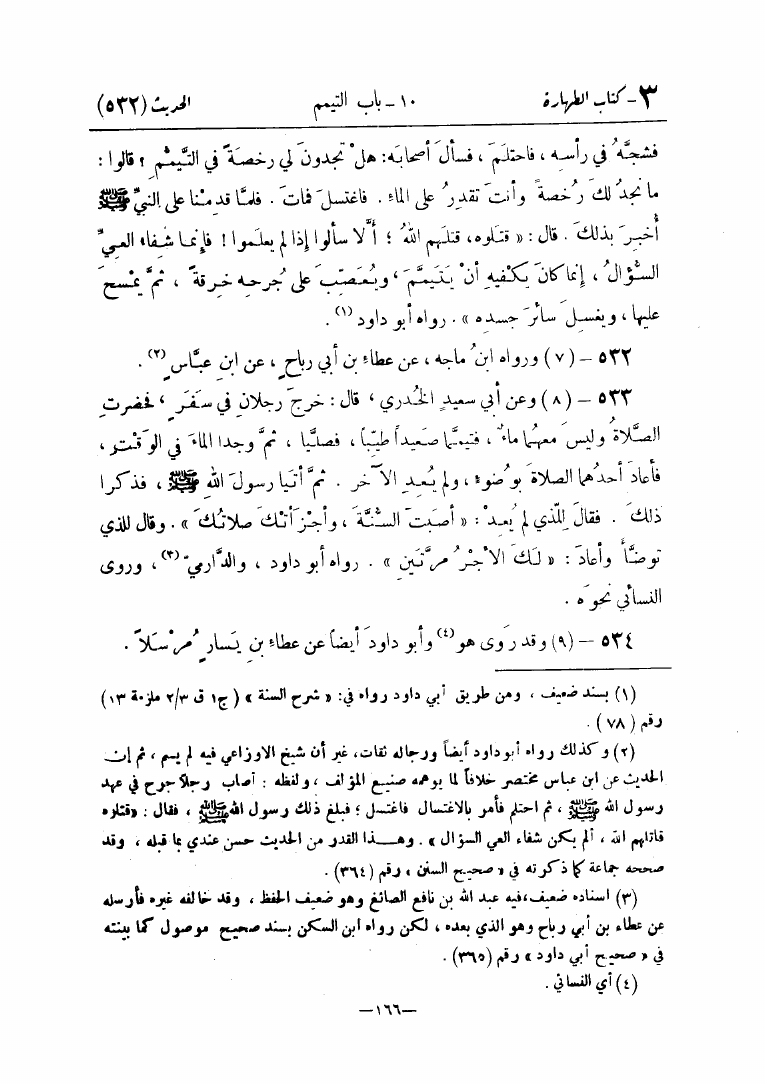 ٣- كتاب الطهارة ١٠- باب التيمم الحديث (٥٣٢)
فشجَّهُ في رأسِه، فاحتلمَ، فسألَ أصحابَه: هلْ تجدونَ لي رخصةً في التَّيمُّمِ؟ قالوا:
ما نجدُ لكَ رُخصةً وأنتَ تقدرُ على الماءِ. فاغتسلَ فماتَ. فلمَّا قدِمْنا على النبيِّ ﷺ
أُخبِرَ بذلكَ. قال: «قتلوه، قتلَهم اللهُ؛ ألَّا سألوا إذا لم يعلَموا! فإنما شفاءُ العِيِّ
السُّؤالُ، إنما كانَ يَكْفيهِ أنْ يَتَيمَّمَ، ويُعَصِّبَ على جُرحِه خِرقةً، ثمَّ يمْسحَ
عليها، ويغسِلَ سائرَ جسدِه». رواه أبو داود (١).
٥٣٢ – (٧) ورواه ابنُ ماجه، عن عطاءِ بنِ أبي رباحٍ، عن ابنِ عبَّاسٍ (٢).
٥٣٣ – (٨) وعن أبي سعيدٍ الخُدري، قال: خرجَ رجلانِ في سفَرٍ، فحضرتِ
الصَّلاةُ وليسَ معهُما ماءٌ، فتيمَّما صَعيداً طيِّباً، فصلَّيا، ثمَّ وجدا الماءَ في الوَقْتِ،
فأعادَ أحدُهما الصلاةَ بوُضوءٍ، ولم يُعِدِ الآخر. ثمَّ أتَيا رسولَ اللهِ ﷺ، فذكرا
ذلكَ. فقالَ لِلَّذي لم يُعِدْ: «أصبتَ السُّنَّةَ، وأجْزَأتْكَ صلاتُكَ». وقال للذي
توضَّأَ وأعادَ: «لَكَ الأجْرُ مرَّتَينِ». رواه أبو داود، والدَّارميّ (٣)، وروى
النسائي نحوَه.
٥٣٤ – (٩) وقد رَوى هو (٤) وأبو داودَ أيضاً عن عطاءِ بنِ يَسارٍ مُرْسَلاً.
(١) بسند ضعيف، ومن طريق أبي داود رواه في: «شرح السنة» (ج١ ق ٢/٣ ملزمة ١٣)
رقم (٧٨).
(٢) وكذلك رواه أبو داود أيضاً ورجاله ثقات، غير أن شيخ الاوزاعي فيه لم يسم، ثم إن
الحديث عن ابن عباس مختصر خلافاً لما يوهمه صنيع المؤلف، ولفظه: أصاب رجلاً جرح في عهد
رسول الله ﷺ، ثم احتلم فأمر بالاغتسال فاغتسل؛ فبلغ ذلك رسول الله ﷺ، فقال: «قتلوه
قاتلهم الله، ألم يكن شفاء العي السؤال». وهذا القدر من الحديث حسن عندي بما قبله، وقد
صححه جماعة كما ذكرته في «صحيح السنن» رقم (٣٦٤).
(٣) اسناده ضعيف، فيه عبد الله بن نافع الصائغ وهو ضعيف الحفظ، وقد خالفه غيره فأرسله
عن عطاء بن أبي رباح وهو الذي بعده، لكن رواه ابن السكن بسند صحيح موصول كما بينته
في «صحيح أبي داود» رقم (٣٦٥).
(٤) أي النسائي.
–١٦٦–